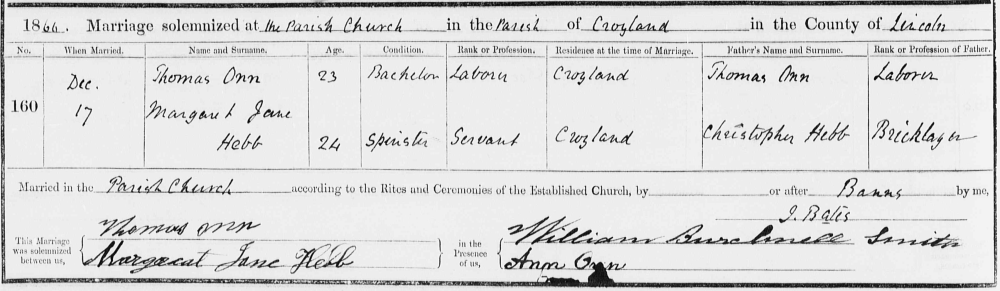 1866. Marriage solemnized at the Parish Church in the Parish of Croyland in the County of Lincoln
No. When Married. Name and Surname. Age. Condition. Rank or Profession. Residence at the time of Marriage. Father's Name and Surname. Rank or Profession of Father.
160 Dec. 17 Thomas Onn 23 Bachelor Laborer Croyland Thomas Onn Laborer
Margaret Jane
Hebb 24 Spinster Servant Croyland Christopher Hebb Bricklayer
Married in the Parish Church according to the Rites and Ceremonies of the Established Church, by or after Banns by me,
J. Bates
This Marriage was solemnized between us,
Thomas Onn
Margaret Jane Hebb
in the Presence of us,
William Smith
Ann Onn